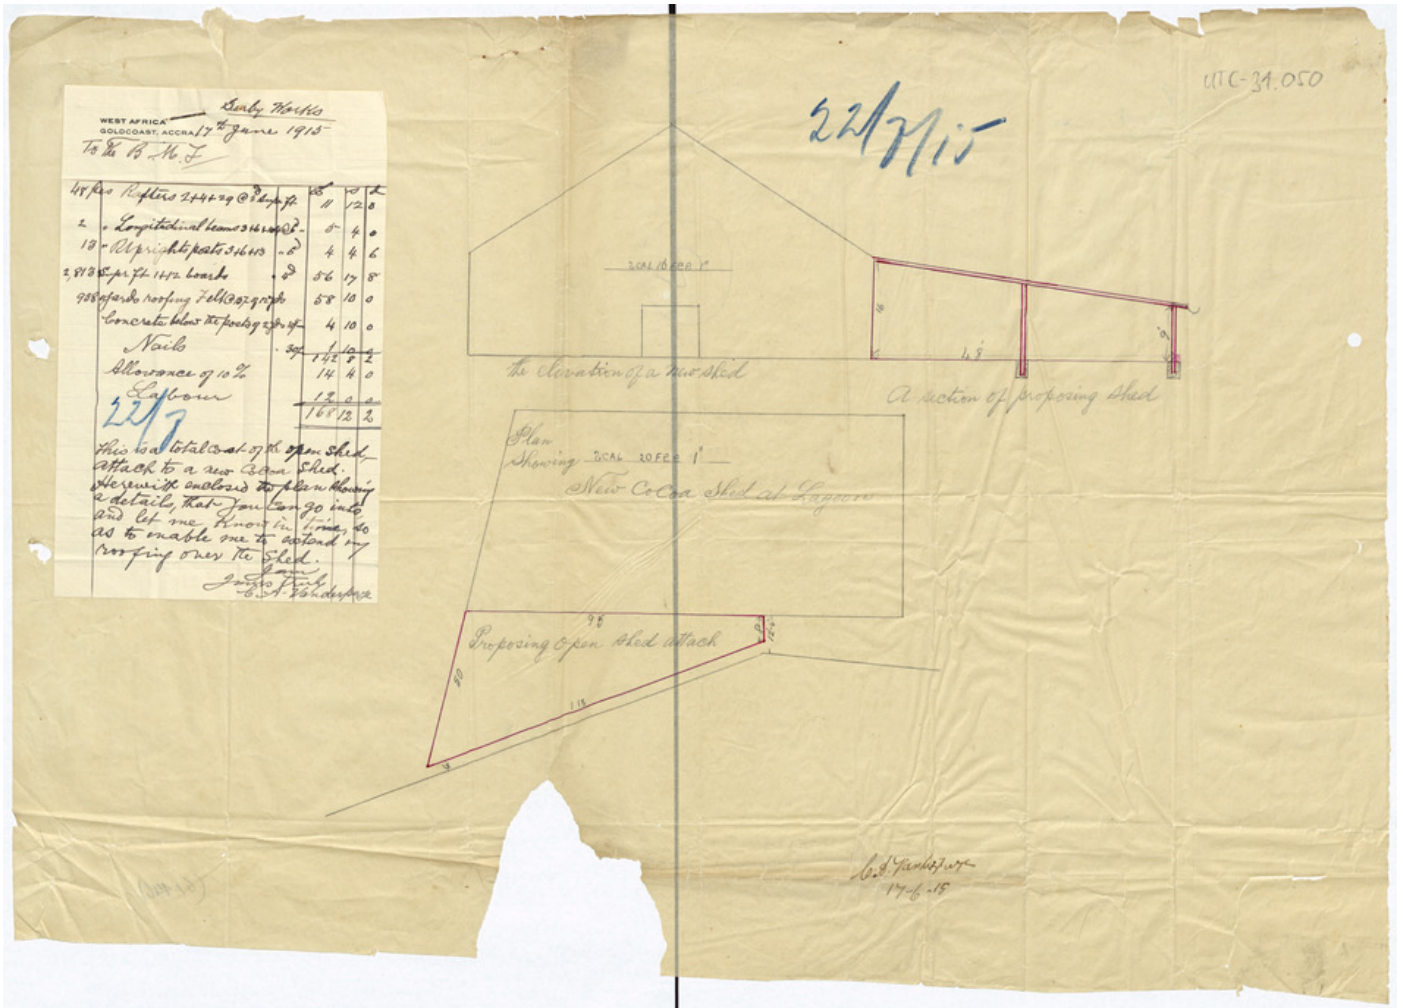 UTC-34.050
22/7/15
Derby Works
WEST AFRICA
GOLDCOAST, ACCRA 17th June 1915
To the B. M. F
48 pcs Rafters 2+4+29 @ 11 12 0
2 " Longitudinal beams 5 4 0
13 " Uprights posts 3+6+13 " 4 4 6
2,813 Supr ft 1+12 boards " 4d 56 17 8
yards roofing Felt 58 10 0
Concrete below the posts 4 10 0
Nails 1 10 0
142 8 2
Allowance of 10% 14 4 0
Labour 12 0 0
168 12 2
22/7
This is a total cost of the open shed,
attach to a new Cocoa Shed.
Herewith enclosed the plan showing
a details, that you can go into
and let me know in time, so
as to enable me to extend my
roofing over the shed.
I am
Yours Truly
C. A. Vanderpuye
SCAL 10 FEE 1"
the elevation of a new shed
16
48
9
A section of proposing shed
Plan
Showing SCAL 20 FEE 1"
New Cocoa Shed at Lagoon
98
Proposing open shed attach
50
118
C. A. Vanderpuye
17-6-15